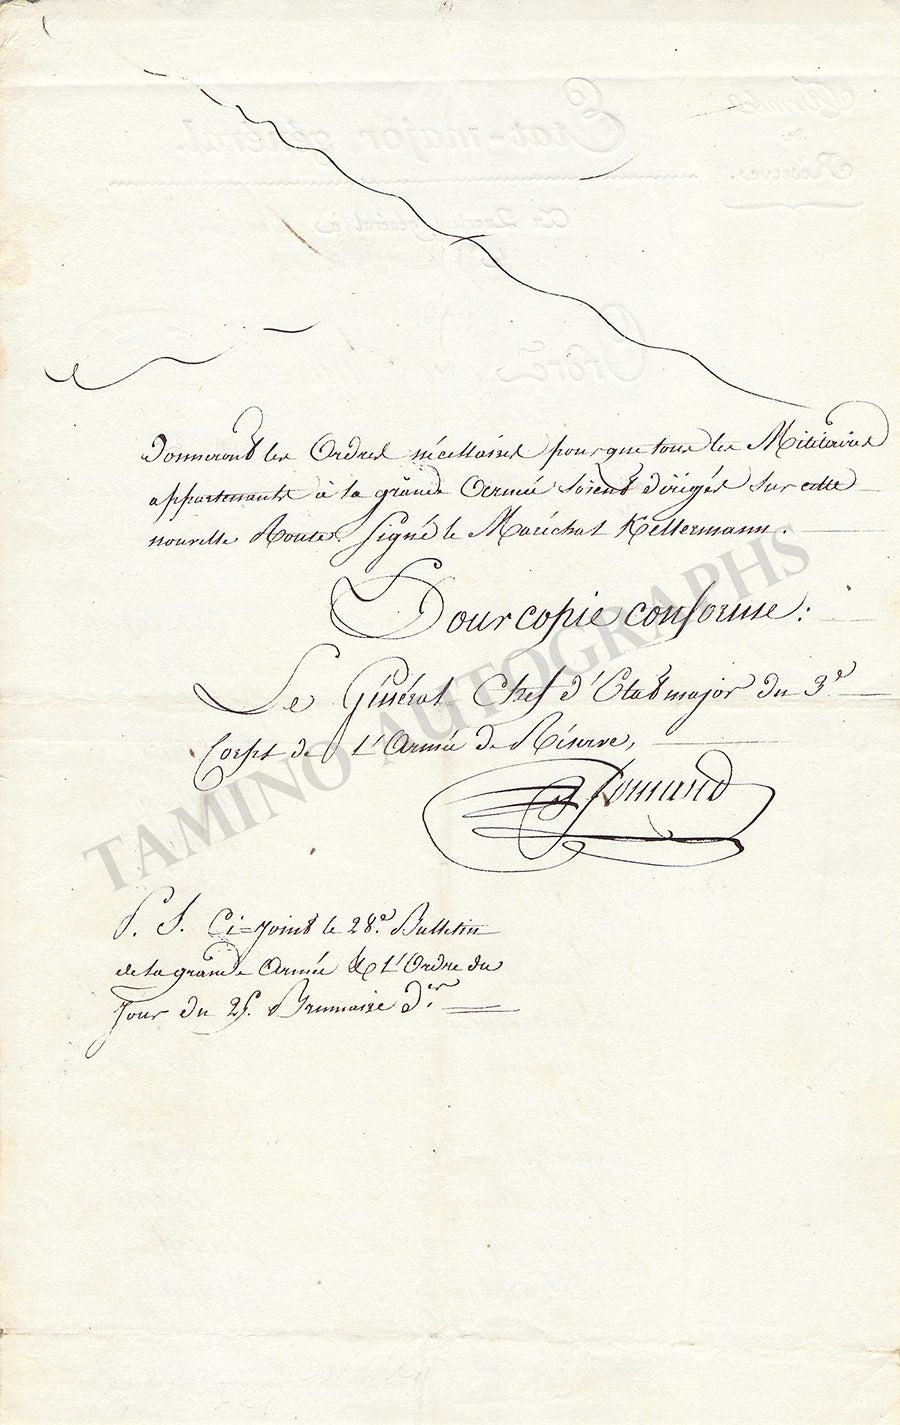 Donneront les Ordres nécessaires pour que tous les Militaires
appartenants à la grande Armée soient dirigés sur cette
nouvelle Route. Signé le Maréchal Kellermann.
Pour copie conforme:
Le Général Chef d'Etat major du 3e
Corps de L'Armée de Réserve,
P. S. Ci=Joint le 28e. Bulletin
de la grande Armée & L'Ordre du
Jour du 25. Brumaire der
TAMINO AUTOGRAPHS
Etat-major général.
Armée
de
Réserve.
Ordre